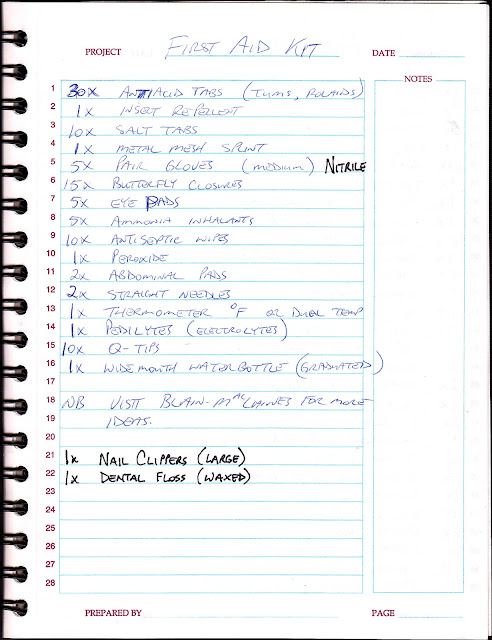 PROJECT First Aid Kit DATE
NOTES
1 30x Antiacid Tabs (Tums, Rolaids)
2 1x Insect Repellent
3 10x Salt Tabs
4 1x Metal Mesh Splint
5 5x Pair Gloves (medium) Nitrile
6 15x Butterfly Closures
7 5x Eye Pads
8 5x Ammonia Inhalants
9 10x Antiseptic Wipes
10 1x Peroxide
11 2x Abdominal Pads
12 2x Straight Needles
13 1x Thermometer °F or Dual Temp
14 1x Pedilytes (Electrolytes)
15 10x Q-Tips
16 1x Widemouth Water Bottle (Graduated)
17
18 NB Visit for more
19 ideas.
20
21 1x Nail Clippers (Large)
22 1x Dental Floss (Waxed)
23
24
25
26
27
28
PREPARED BY PAGE